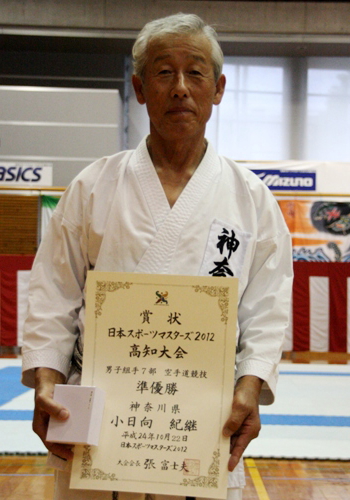 asics
MIZUNO
神奈
賞状
日本スポーツマスターズ2012
高知大会
男子組手7部 空手道競技
準優勝
神奈川県
小日向 紀継
平成24年10月22日
日本スポーツマスターズ2012
大会会長 張 富士夫